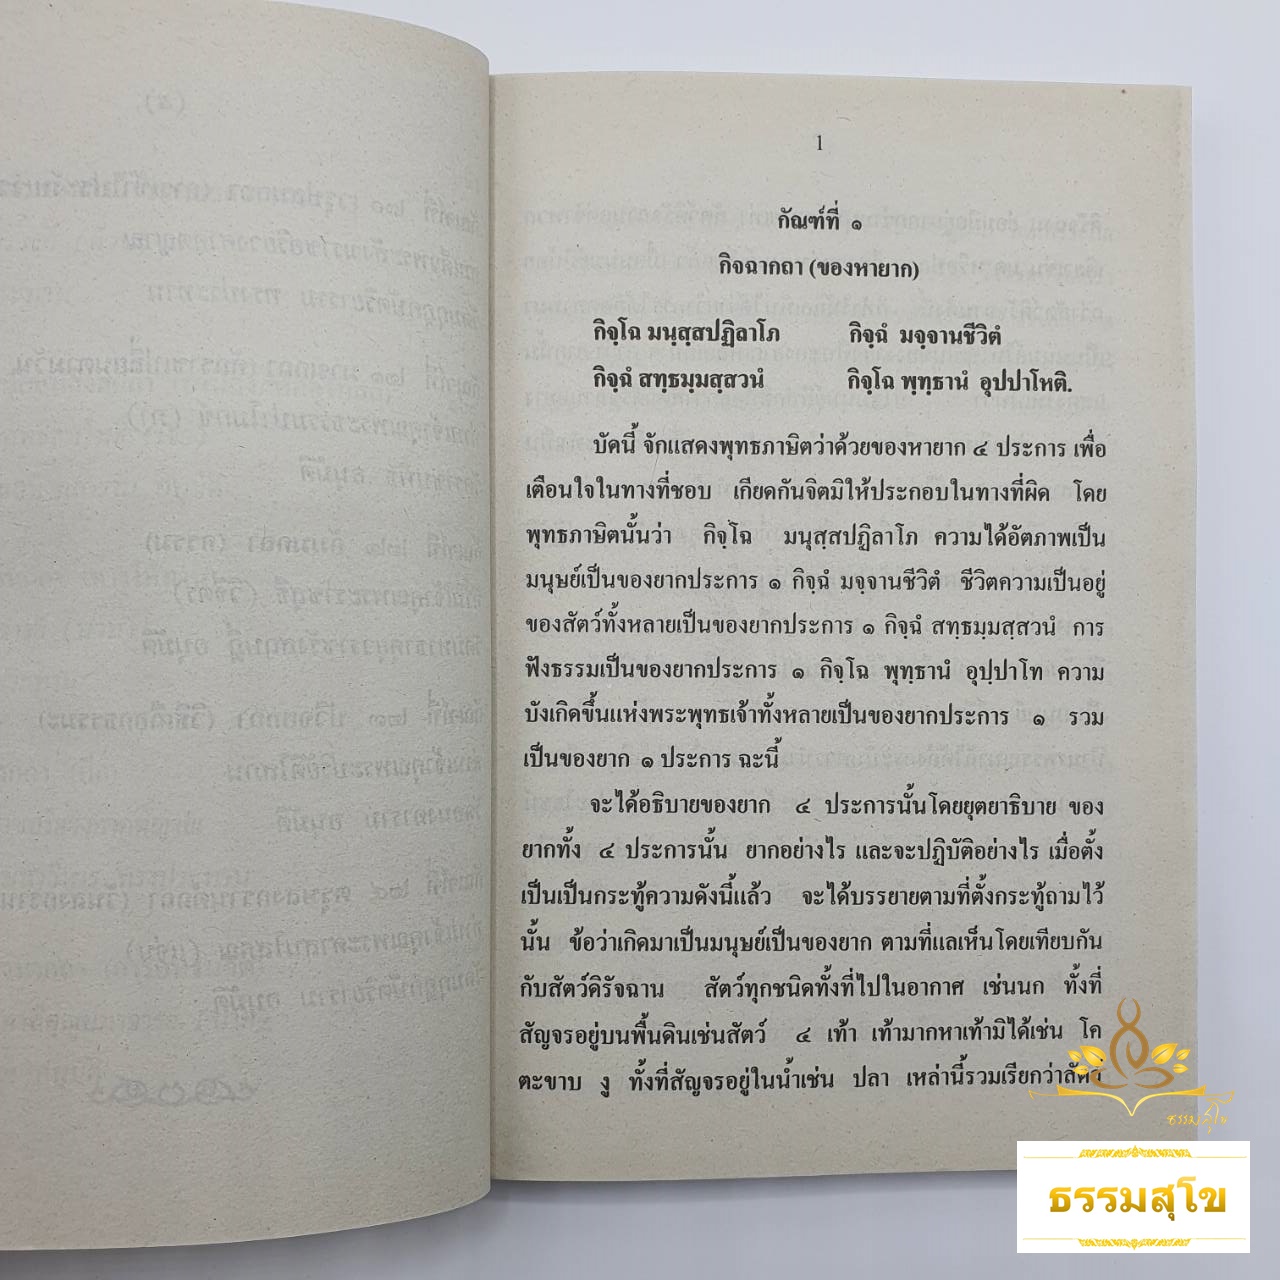 1
กัณฑ์ที่ ๑
กิจฉากถา (ของหายาก)
กิจฺโฉ มนุสฺสปฏิลาโภ กิจฺฉํ มจฺจานชีวิตํ
กิจฺฉํ สทฺธมฺมสฺสวนํ กิจฺโฉ พุทฺธานํ อุปฺปาโทติ.
บัดนี้ จักแสดงพุทธภาษิตว่าด้วยของหายาก ๔ ประการ เพื่อ
เตือนใจในทางที่ชอบ เกียดกันจิตมิให้ประกอบในทางที่ผิด โดย
พุทธภาษิตนั้นว่า กิจฺโฉ มนุสฺสปฏิลาโภ ความได้อัตภาพเป็น
มนุษย์เป็นของยากประการ ๑ กิจฺฉํ มจฺจานชีวิตํ ชีวิตความเป็นอยู่
ของสัตว์ทั้งหลายเป็นของยากประการ ๑ กิจฺฉํ สทฺธมฺมสฺสวนํ การ
ฟังธรรมเป็นของยากประการ ๑ กิจฺโฉ พุทฺธานํ อุปฺปาโท ความ
บังเกิดขึ้นแห่งพระพุทธเจ้าทั้งหลายเป็นของยากประการ ๑ รวม
เป็นของยาก ๑ ประการ ฉะนี้
จะได้อธิบายของยาก ๔ ประการนั้นโดยยุตยาธิบาย ของ
ยากทั้ง ๔ ประการนั้น ยากอย่างไร และจะปฏิบัติอย่างไร เมื่อตั้ง
เป็นเป็นกระทู้ความดังนี้แล้ว จะได้บรรยายตามที่ตั้งกระทู้ถามไว้
นั้น ข้อว่าเกิดมาเป็นมนุษย์เป็นของยาก ตามที่แลเห็นโดยเทียบกัน
กับสัตว์ดิรัจฉาน สัตว์ทุกชนิดทั้งที่ไปในอากาศ เช่นนก ทั้งที่
สัญจรอยู่บนพื้นดินเช่นสัตว์ ๔ เท้า เท้ามากหาเท้ามิได้เช่น โค
ตะขาบ งู ทั้งที่สัญจรอยู่ในน้ำเช่น ปลา เหล่านี้รวมเรียกว่าสัตว์
ธรรมสุโข
ธรรมสุโข